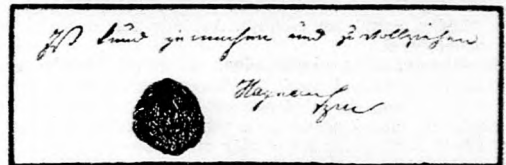 Ist kund zu machen und zu vollziehen
Haynau